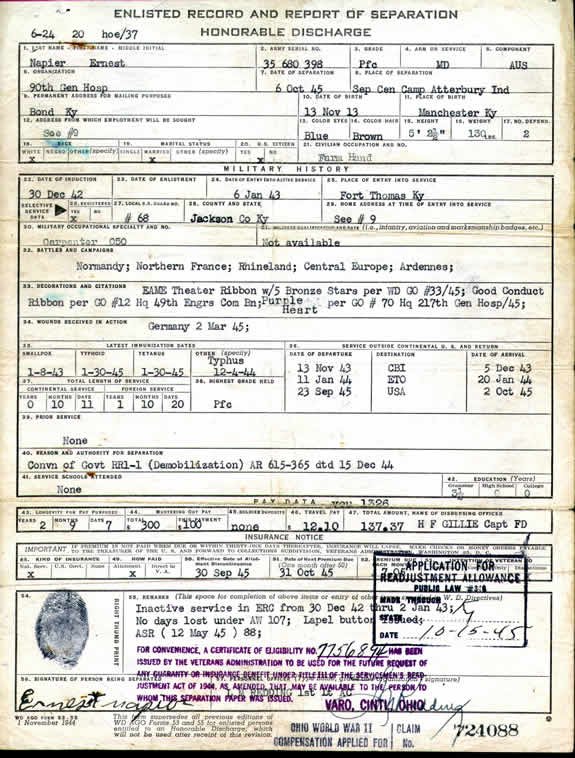 ENLISTED RECORD AND REPORT OF SEPARATION
HONORABLE DISCHARGE
6-24 20 hoe/37
1. LAST NAME - FIRST NAME - MIDDLE INITIAL 2. ARMY SERIAL NO. 3. GRADE 4. ARM OR SERVICE 5. COMPONENT
Napier Ernest 35 680 398 Pfc MD AUS
6. ORGANIZATION 7. DATE OF SEPARATION 8. PLACE OF SEPARATION
90th Gen Hosp 6 Oct 45 Sep Cen Camp Atterbury Ind
9. PERMANENT ADDRESS FOR MAILING PURPOSES 10. DATE OF BIRTH 11. PLACE OF BIRTH
Bond Ky 13 Nov 13 Manchester Ky
12. ADDRESS FROM WHICH EMPLOYMENT WILL BE SOUGHT 13. COLOR EYES 14. COLOR HAIR 15. HEIGHT 16. WEIGHT 17. NO. DEPEND.
See #9 Blue Brown 5' 2½" 130 LBS. 2
18. RACE 19. MARITAL STATUS 20. U.S. CITIZEN 21. CIVILIAN OCCUPATION AND NO.
WHITE NEGRO OTHER (specify) SINGLE MARRIED OTHER (specify) YES NO
X X X Farm Hand
MILITARY HISTORY
22. DATE OF INDUCTION 23. DATE OF ENLISTMENT 24. DATE OF ENTRY INTO ACTIVE SERVICE 25. PLACE OF ENTRY INTO SERVICE
30 Dec 42 6 Jan 43 Fort Thomas Ky
SELECTIVE SERVICE DATA 26. REGISTERED YES NO 27. LOCAL S.S. BOARD NO. 28. COUNTY AND STATE 29. HOME ADDRESS AT TIME OF ENTRY INTO SERVICE
X # 68 Jackson Co Ky See # 9
30. MILITARY OCCUPATIONAL SPECIALTY AND NO. 31. MILITARY QUALIFICATION AND DATE (i.e., infantry, aviation and marksmanship badges, etc.)
Carpenter 050 Not available
32. BATTLES AND CAMPAIGNS
Normandy; Northern France; Rhineland; Central Europe; Ardennes;
33. DECORATIONS AND CITATIONS EAME Theater Ribbon w/5 Bronze Stars per WD GO #33/45; Good Conduct
Ribbon per GO #12 Hq 49th Engrs Com Bn; Purple Heart per GO # 70 Hq 217th Gen Hosp/45;
34. WOUNDS RECEIVED IN ACTION
Germany 2 Mar 45;
35. LATEST IMMUNIZATION DATES 36. SERVICE OUTSIDE CONTINENTAL U.S. AND RETURN
SMALLPOX TYPHOID TETANUS OTHER (specify) DATE OF DEPARTURE DESTINATION DATE OF ARRIVAL
Typhus
1-8-43 1-30-45 1-30-45 12-4-44
13 Nov 43 CBI 5 Dec 43
11 Jan 44 ETO 20 Jan 44
23 Sep 45 USA 2 Oct 45
37. TOTAL LENGTH OF SERVICE 38. HIGHEST GRADE HELD
CONTINENTAL SERVICE FOREIGN SERVICE
YEARS MONTHS DAYS YEARS MONTHS DAYS
0 10 11 1 10 20 Pfc
39. PRIOR SERVICE
None
40. REASON AND AUTHORITY FOR SEPARATION
Convn of Govt RR1-1 (Demobilization) AR 615-365 dtd 15 Dec 44
41. SERVICE SCHOOLS ATTENDED 42. EDUCATION (Years)
None Grammar High School College
0 0
PAY DATA
43. LONGEVITY FOR PAY PURPOSES 44. MUSTERING OUT PAY 45. SOLDIER DEPOSITS 46. TRAVEL PAY 47. TOTAL AMOUNT, NAME OF DISBURSING OFFICER
YEARS MONTHS DAYS TOTAL THIS PAYMENT
2 7 $300 $100 none 12.10 137.37 H F GILLIE Capt FD
INSURANCE NOTICE
IMPORTANT IF PREMIUM IS NOT PAID WHEN DUE OR WITHIN THIRTY-ONE DAYS THEREAFTER, INSURANCE WILL LAPSE. MAKE CHECKS OR MONEY ORDERS PAYABLE
TO THE TREASURER OF THE U.S. AND FORWARD TO COLLECTIONS SUBDIVISION, VETERANS ADMINISTRATION, WASHINGTON 25, D.C.
KIND OF INSURANCE HOW PAID Effective Date of Allotment Discontinuance Date of Next Premium Due (One month after 50)
Nat. Serv. U.S. Govt. None Allotment Direct to V.A.
X X 30 Sep 45 31 Oct 45
APPLICATION FOR
READJUSTMENT ALLOWANCE
PUBLIC LAW
MADE THROUGH
STATE
DATE 10-15-45
RIGHT THUMB PRINT
55. REMARKS (This space for completion of above items or entry of other items specified in W. D. Directives)
Inactive service in ERC from 30 Dec 42 thru 2 Jan 43;
No days lost under AW 107; Lapel button issued;
ASR (12 May 45) 88;
FOR CONVENIENCE, A CERTIFICATE OF ELIGIBILITY NO. 7756894 HAS BEEN
ISSUED BY THE VETERANS ADMINISTRATION TO BE USED FOR THE FUTURE REQUEST OF
ANY GUARANTY OR INSURANCE BENEFIT UNDER TITLE III OF THE SERVICEMEN'S READ-
JUSTMENT ACT OF 1944, AS AMENDED, THAT MAY BE AVAILABLE TO THE PERSON TO
WHOM THIS SEPARATION PAPER WAS ISSUED.
VARO, CINTI, OHIO
56. SIGNATURE OF PERSON BEING SEPARATED
Ernest Napier
1st Lt AC
WD AGO FORM 53-55
1 November 1944
This form supersedes all previous editions of
WD AGO Forms 53 and 55 for enlisted persons
entitled to an Honorable Discharge, which
will not be used after receipt of this revision.
OHIO WORLD WAR II
COMPENSATION APPLIED FOR
CLAIM
No. 724088